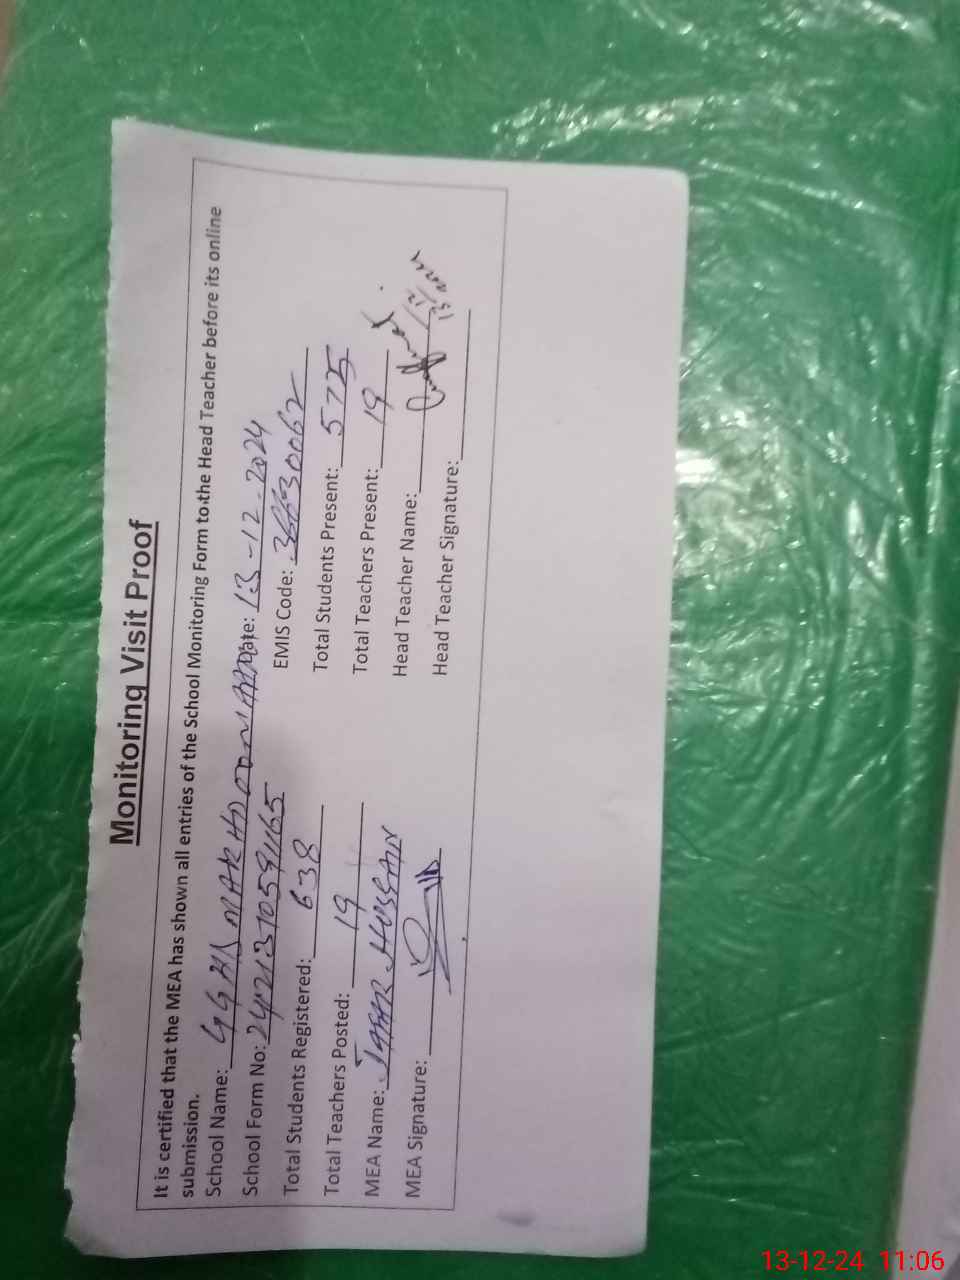 Monitoring Visit Proof
It is certified that the MEA has shown all entries of the School Monitoring Form to the Head Teacher before its online
submission.
School Name: GGHS MAKHDOOM Date: 13-12-2024
School Form No: EMIS Code:
Total Students Registered: 638 Total Students Present: 575
Total Teachers Posted: 19 Total Teachers Present: 19
MEA Name: JAFAR HUSSAIN Head Teacher Name:
MEA Signature: Head Teacher Signature:
13-12-24 11:06